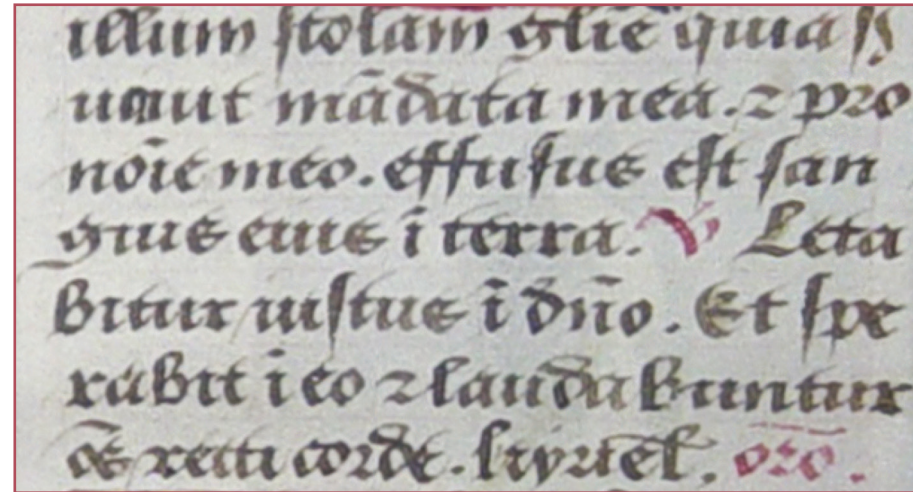 illum stolam gl̄ie quia s
uauit mādata mea. ⁊ pro
noīe meo. effusus est san
guis eius ī terra. ℣ Leta
bitur iustus ī dn̄o. Et spe
rabit ī eo ⁊ laudabuntur
oēs recti corde. orō.